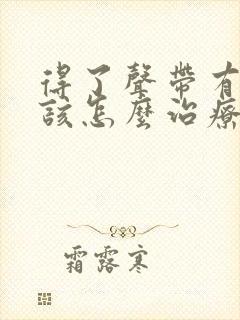 得了聲帶有
該怎麼治療
霜露寒